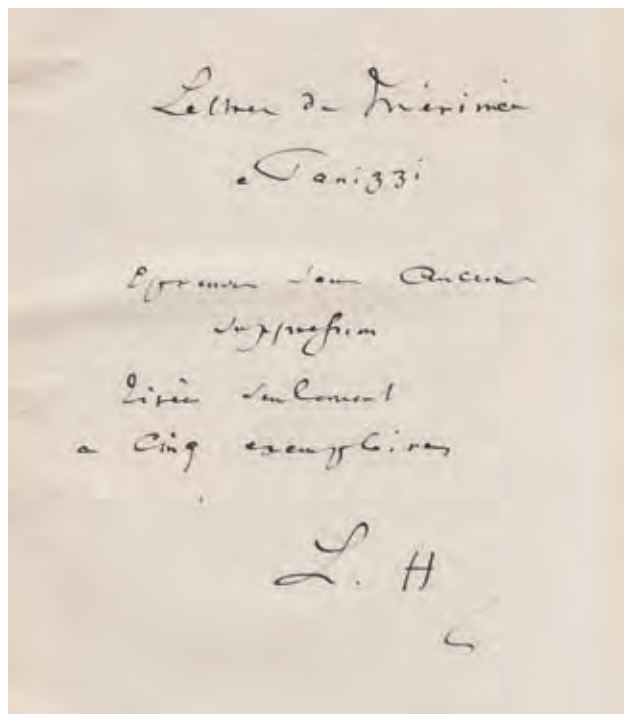 Lettres de Mérimée
a Panizzi
Epreuves sans Aucune
suppression
tirées seulement
a Cinq exemplaires
L. H